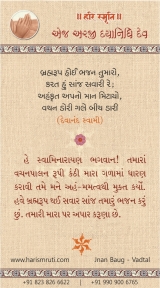 ॥ હરિ સ્મૃતિ ॥
એજ અરજી દયાનિધિ દેવ
બ્રહ્મરૂપ હોઈ ભજન તુમારો,
કરત હું સાંજ સવારી રે;
અહંકૃત અપનો માન મિટાયો,
વચન ડોરી ગલે બીચ ડારી
(દેવાનંદ સ્વામી)
હે સ્વામિનારાયણ ભગવાન! તમારાં
વચનપાલન રૂપી કંઠી મારા ગળામાં ધારણ
કરાવી તમે મને અહં-મમત્વથી મુક્ત કર્યો.
હવે બ્રહ્મરૂપ થઈ સવાર સાંજ તમારું ભજન કરું
છું. તમારી મારા પર અપાર કરૂણા છે.
www.harismruti.com
Jnan Baug - Vadtal
+91 823 826 6622
+91 900 900 6765